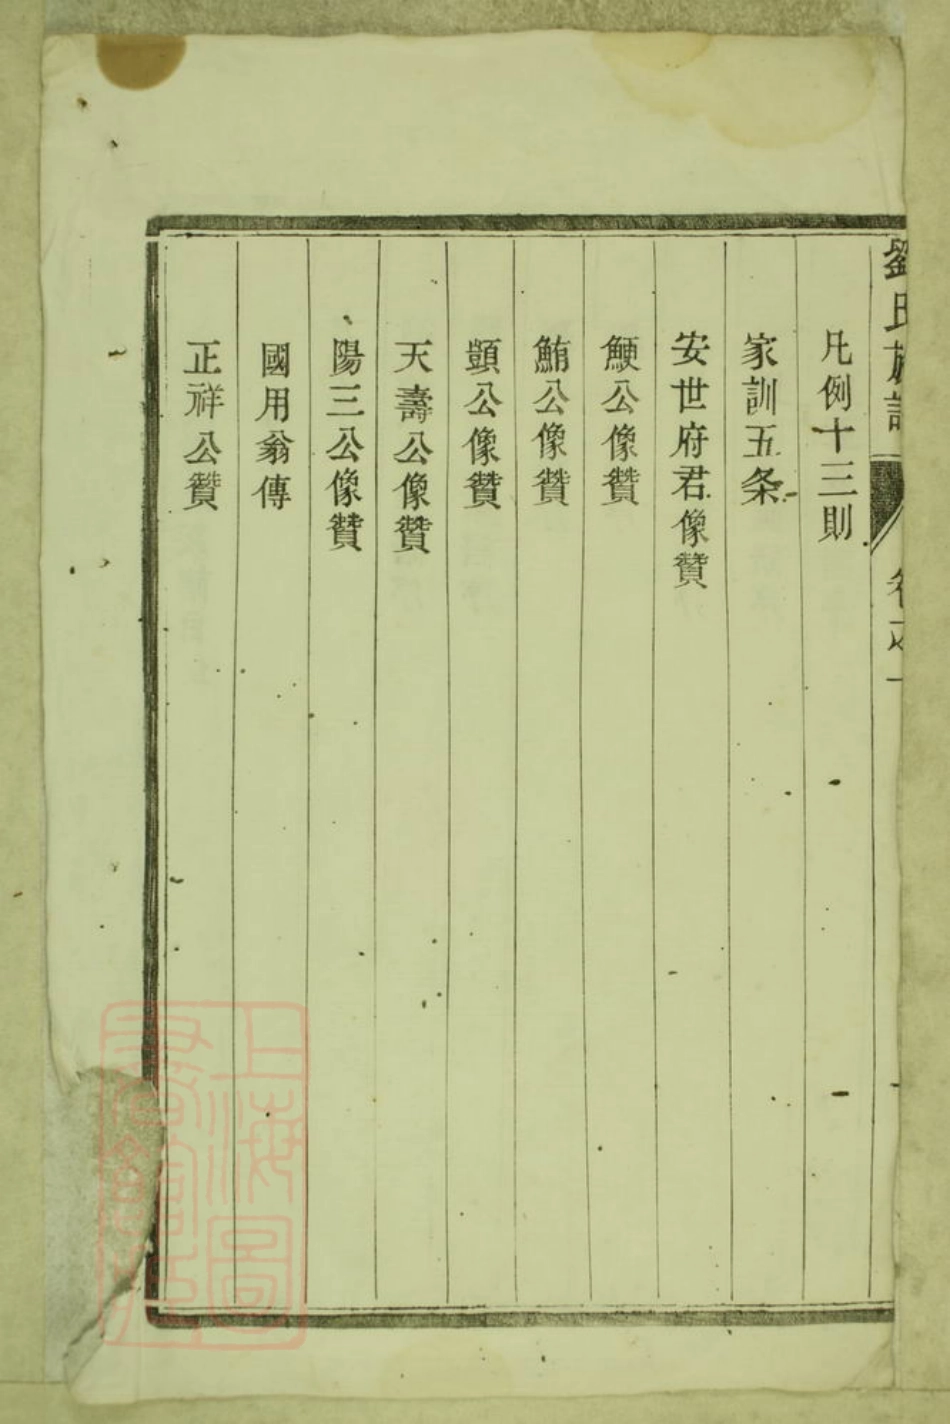 劉氏族譜 卷之一
凡例十三則
家訓五条
安世府君像贊
鯁公像贊
鮪公像贊
顗公像贊
天壽公像贊
陽三公像贊
國用翁傳
正祥公贊
上海圖
書館藏